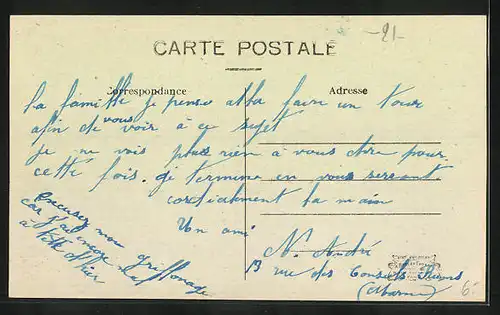 -21-
CARTE POSTALE
Correspondance
Adresse
la famille je pense aller faire un tour
afin de vous voir à ce sujet
je ne vois plus rien à vous dire pour
cette fois. je termine en vous serrant
cordialement la main
Un ami
N. André
13 rue des Consuls
(Marne)
Excusez mon griffonage
car j'ai encore mal
à tête d'hier
6.